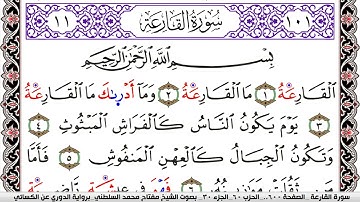 ١٠١ سُورَةُ القَارِعَةِ ١١
بِسْمِ اللَّهِ الرَّحْمَٰنِ الرَّحِيمِ
الْقَارِعَةُ ١ مَا الْقَارِعَةُ ٢ وَمَا أَدْرَىٰكَ مَا الْقَارِعَةُ
٣ يَوْمَ يَكُونُ النَّاسُ كَالْفَرَاشِ الْمَبْثُوثِ ٤
وَتَكُونُ الْجِبَالُ كَالْعِهْنِ الْمَنفُوشِ ٥ فَأَمَّا
مَن ثَقُلَتْ مَوَازِينُهُ ٦ فَهْوَ فِي عِيشَةٍ رَّاضِيَةٍ
سورة القارعة الصفحة ٦٠٠.. الحزب ٦٠ الجزء ٣٠. بصوت الشيخ مفتاح محمد السلطني برواية الدوري عن الكسائي